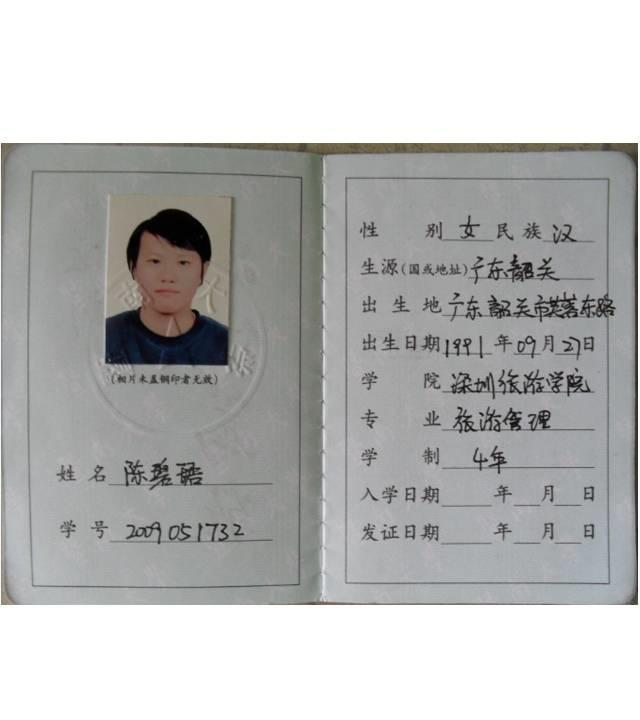 (相片未盖钢印者无效)
姓名 陈碧
学号 2009051732
性别 女 民族 汉
生源(国或地址) 广东韶关
出生地 广东韶关市芙蓉东路
出生日期 1991年09月27日
学院 深圳旅游学院
专业 旅游管理
学制 4年
入学日期 年 月 日
发证日期 年 月 日